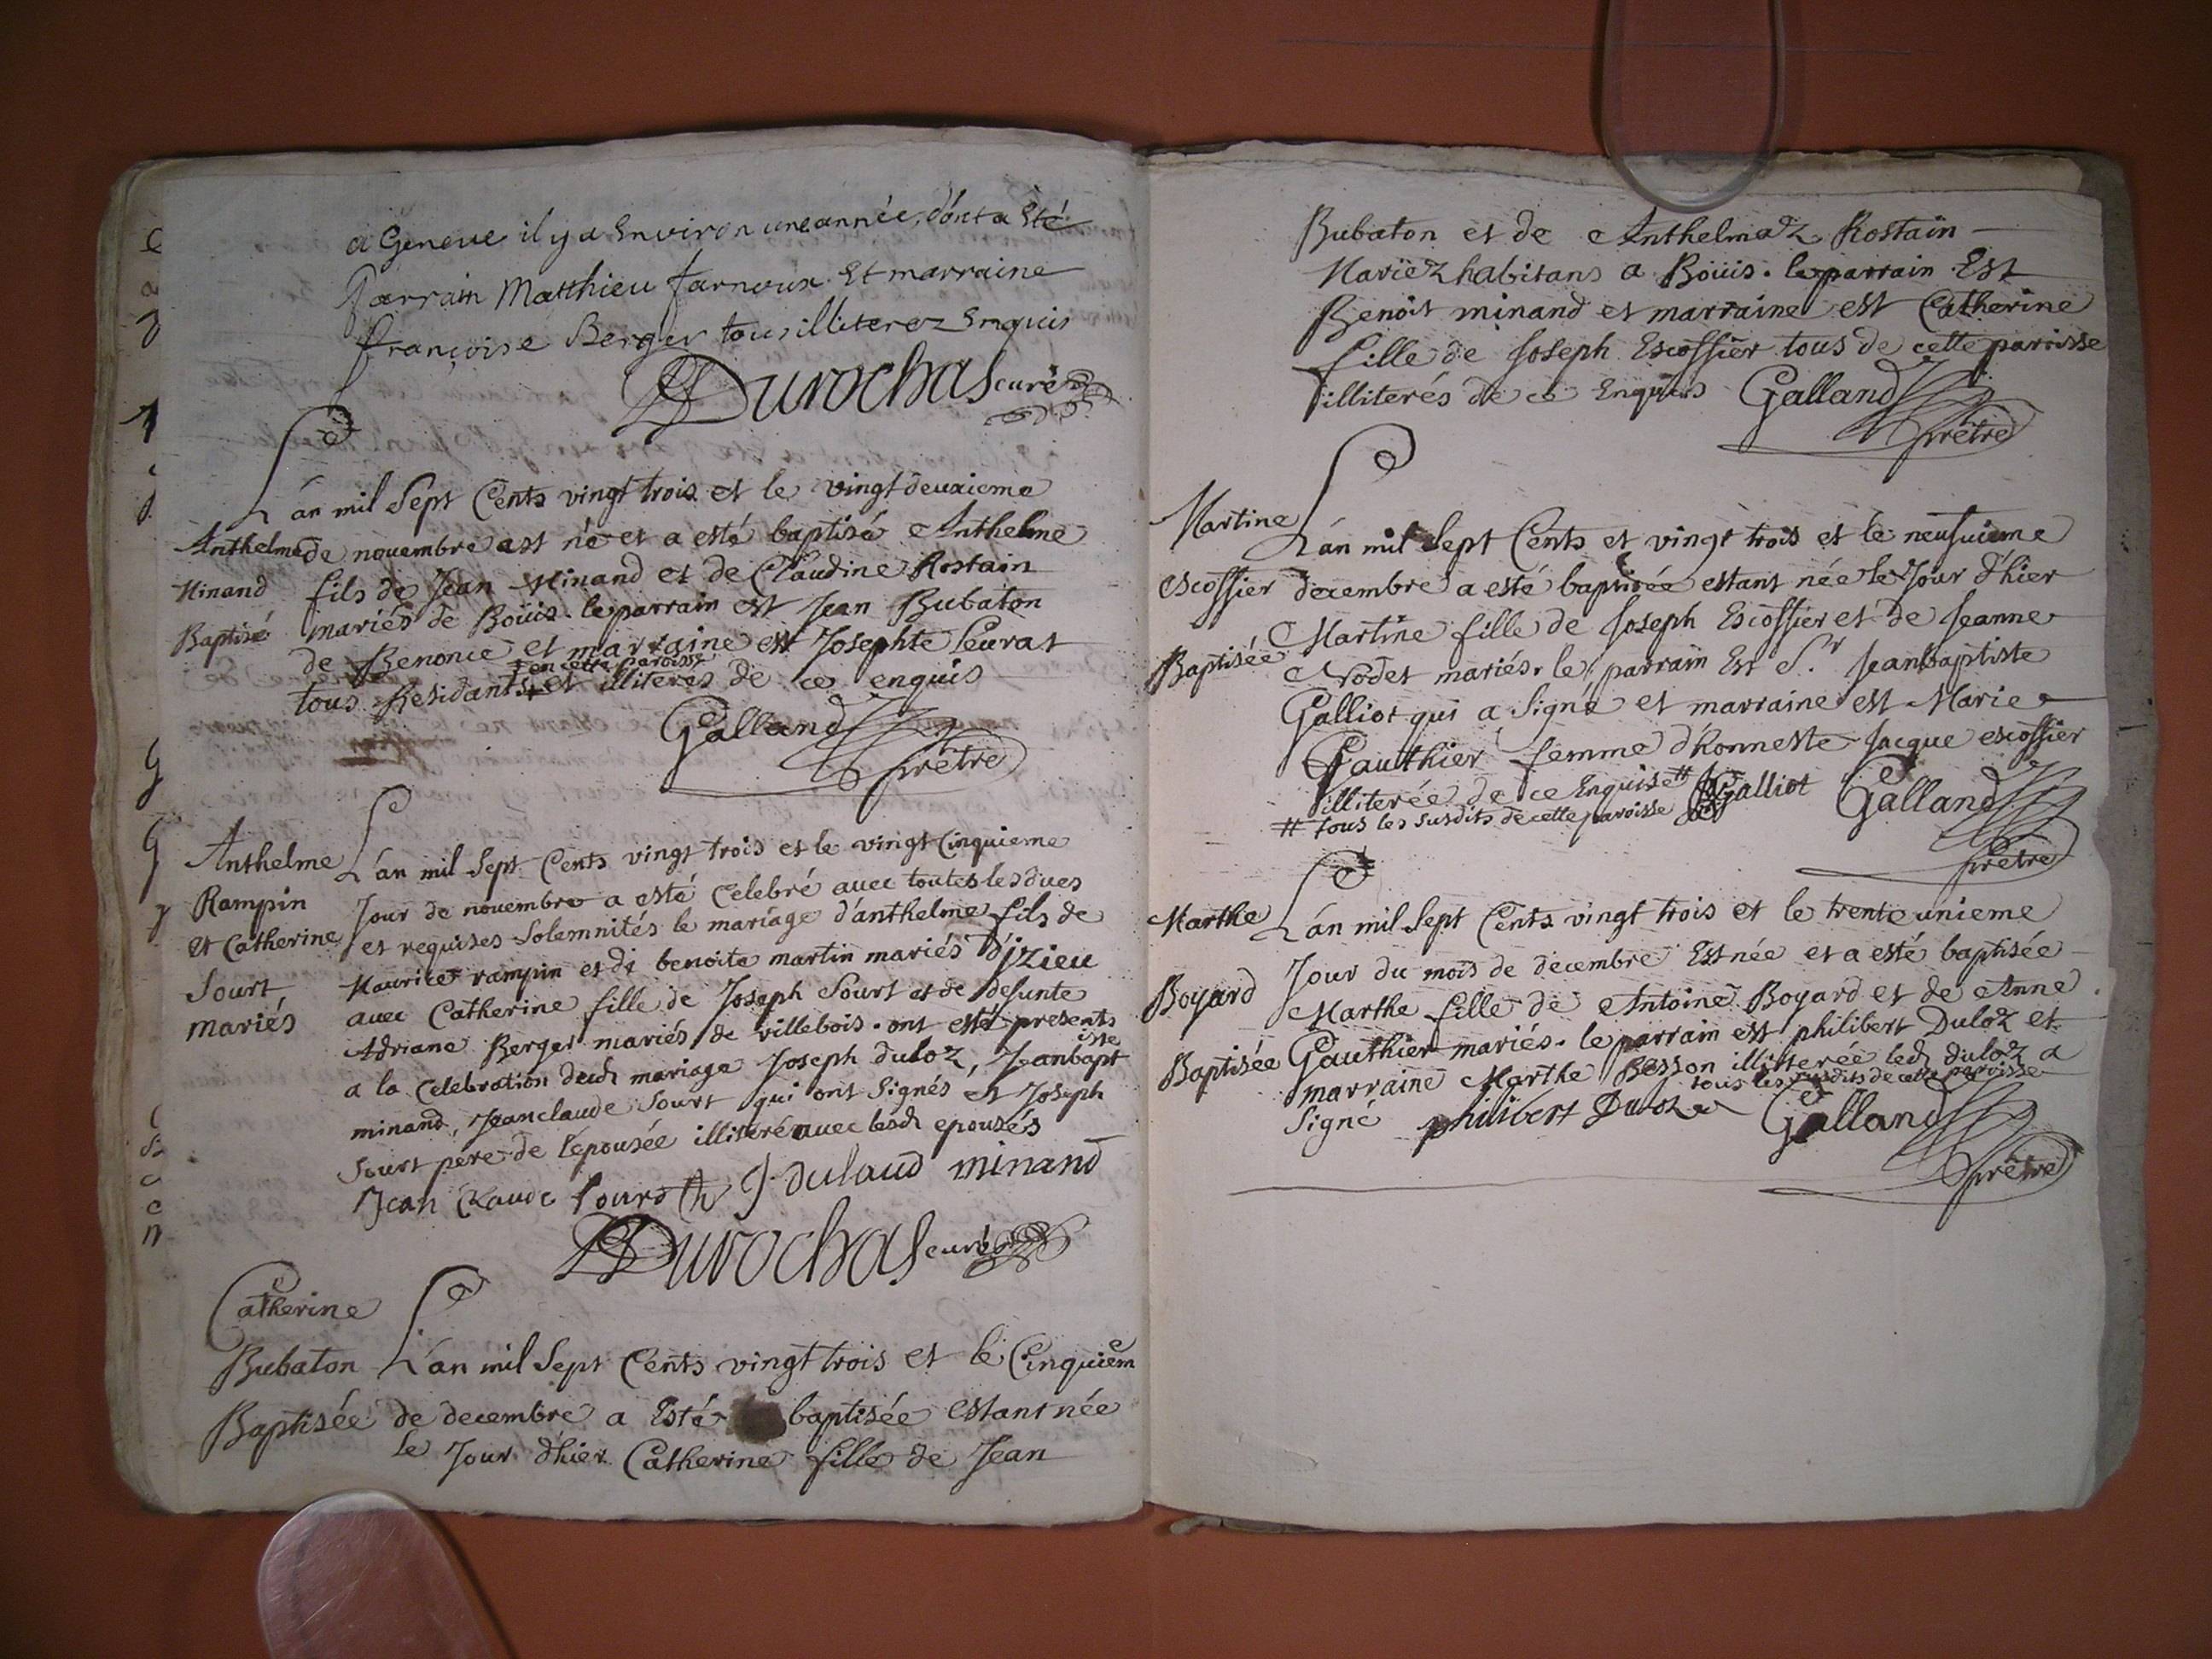 a Geneve il y a Environ une année, d'ont a Eté
parrain Matthieu farnoux Et marraine
françoise Berger tous illiterez Enquis
Durochas curé
L'an mil Sept Cents vingt trois et le vingt deuxieme
Anthelme de novembre est né et a esté baptisé Anthelme
Minand fils de Jean Minand et de Claudine Rostain
Baptisé mariés de Boüis. le parrain est Jean Bubaton
de Benonce et marraine est Josephte Peurat
+ en cette paroisse
tous Residants + et illiterés de ce enquis
Galland
prêtre
Anthelme L'an mil Sept Cents vingt trois et le vingt Cinquieme
Rampin Jour de novembre a esté Celebré avec toutes les dues
et Catherine et requises Solemnités le mariage d'anthelme fils de
Sourt Maurice rampin et de benoite martin mariés d'jzieu
mariés avec Catherine fille de Joseph Sourt et de defunte
Adriane Berger mariés de villebois. ont esté presents
a la Celebration dud mariage Joseph duloz, Jeanbaptiste
minand, Jeanclaude Sourt qui ont Signés et Joseph
Sourt pére de l'épousée illiteré avec lesd epousés
Jean Claude Sourt J. dulaud minand
Durochas curé
Catherine
Bubaton L'an mil Sept Cents vingt trois et le Cinquiem
Baptisée de decembre a Esté baptisée estant née
le Jour d'hier Catherine fille de Jean
Bubaton et de Anthelmaz Rostain
Mariez habitans a Boüis. le parrain Est
Benoit minand et marraine est Catherine
fille de Joseph Escoffier tous de cette paroisse
illiterés de ce Enquis Galland
prêtre
Martine L'an mil Sept Cents et vingt trois et le neufuieme
escoffier decembre a esté baptisée estant née le Jour d'hier
Martine fille de Joseph Escoffier et de Jeanne
Baptisée Nodet mariés. le parrain Est S.r Jeanbaptiste
Galliot qui a Signé et marraine est Marie
Gauthier femme d'honneste Jacque escoffier
illiterée de ce Enquise # Galliot Galland
# tous les susdits de cette paroisse
prêtre
Marthe L'an mil Sept Cents vingt trois et le trente unieme
Boyard Jour du mois de decembre Est née et a esté baptisée
Marthe fille de Antoine Boyard et de Anne
Baptisée Gauthier mariés. le parrain est philibert Duloz et
marraine Marthe Besson illitterée led duloz a
tous les susdits de cette paroisse
Signé philibert Duloz Galland
prêtre